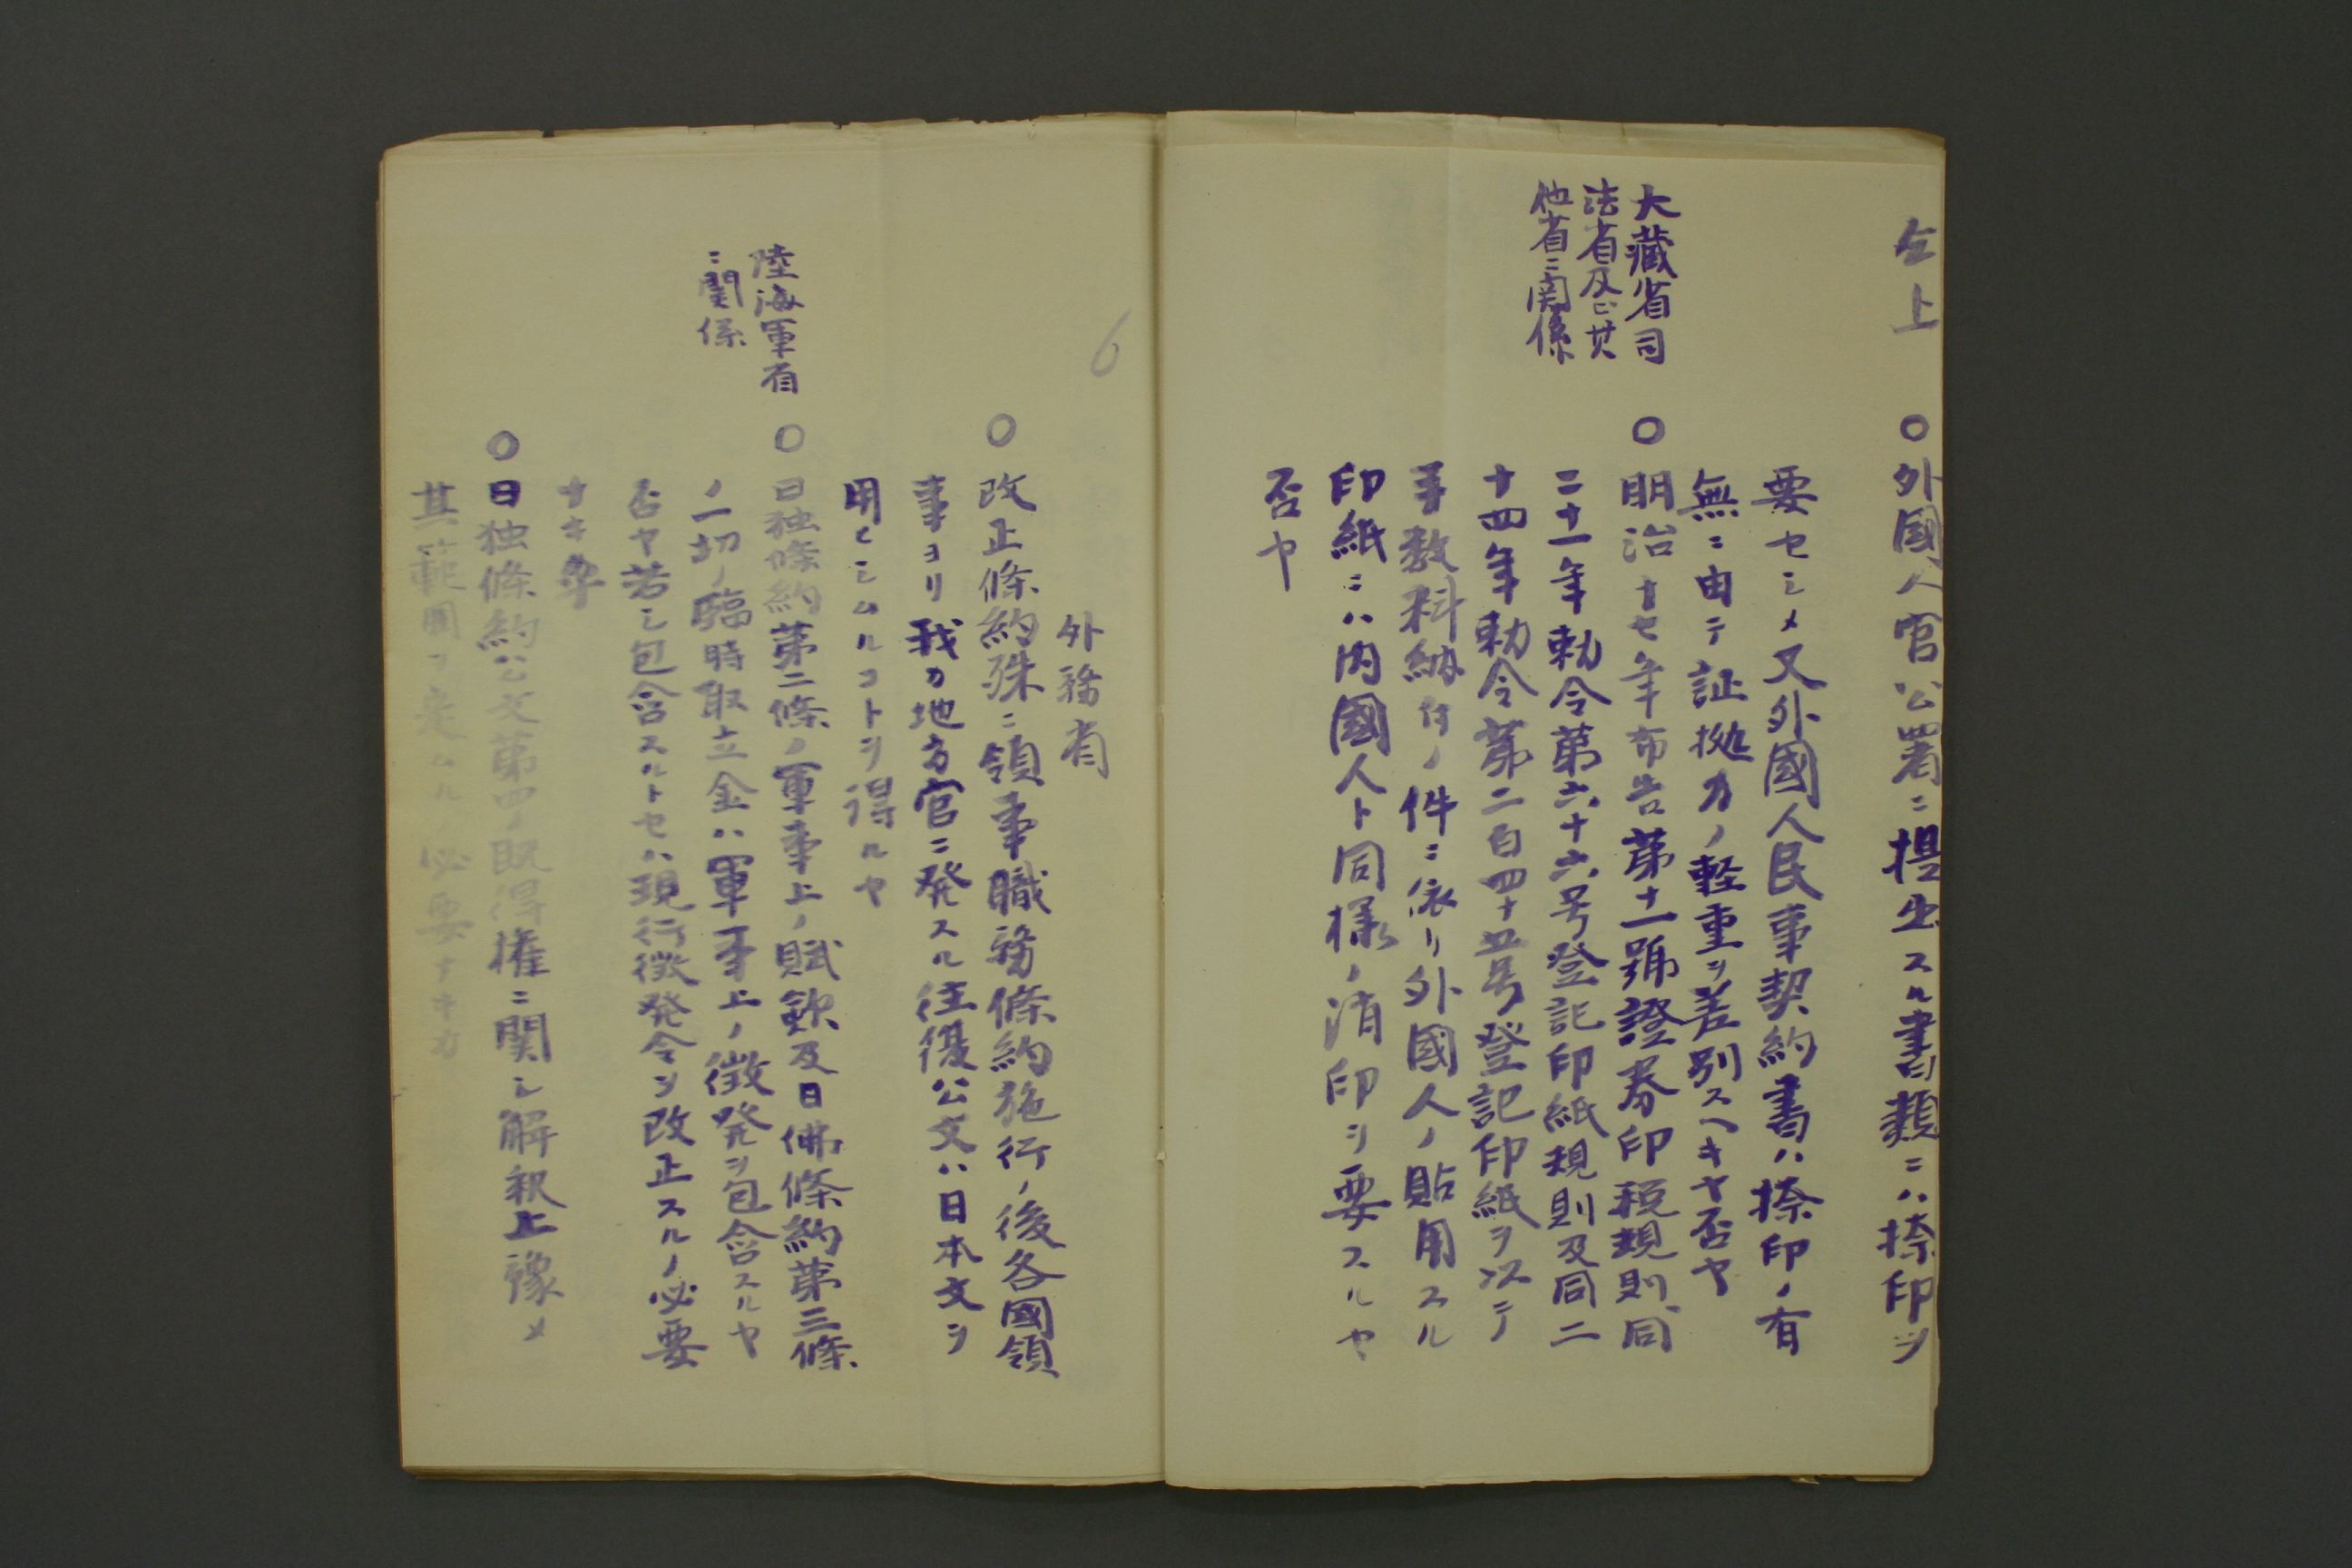 仝上
○外國人官公署ニ提出スル書類ニハ捺印ヲ
要セシメ又外國人民事契約書ハ捺印ノ有
無ニ由テ証拠力ノ軽重ヲ差別スヘキヤ否ヤ
大藏省司
法省及ヒ其
他省ニ関係
○明治十七年布告第十一號證券印税規則同
二十一年勅令第六十六号登記印紙規則及同二
十四年勅令第二百四十五号登記印紙ヲ以テ
手数料納付ノ件ニ依リ外國人ノ貼用スル
印紙ニハ内國人ト同様ノ消印ヲ要スルヤ
否ヤ
6
外務省
○改正條約殊ニ領事職務條約施行ノ後各國領
事ヨリ我カ地方官ニ発スル往復公文ハ日本文ヲ
用ヒシムルコトヲ得ルヤ
陸海軍省
ニ関係
○日独條約第二條ノ軍事上ノ賦歛及日佛條約第三條
ノ一切ノ臨時取立金ハ軍事上ノ徴発ヲ包含スルヤ
否ヤ若シ包含スルトセハ現行徴発令ヲ改正スルノ必要
ナキ
○日独條約公文第四ノ既得権ニ関シ解釈上豫メ
其範囲ヲ定ムルノ必要ナキカ